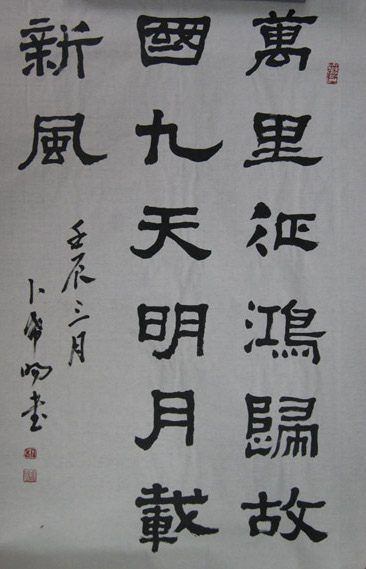 萬里征鴻歸故
國九天明月載
新風
壬辰三月
卜希暘书